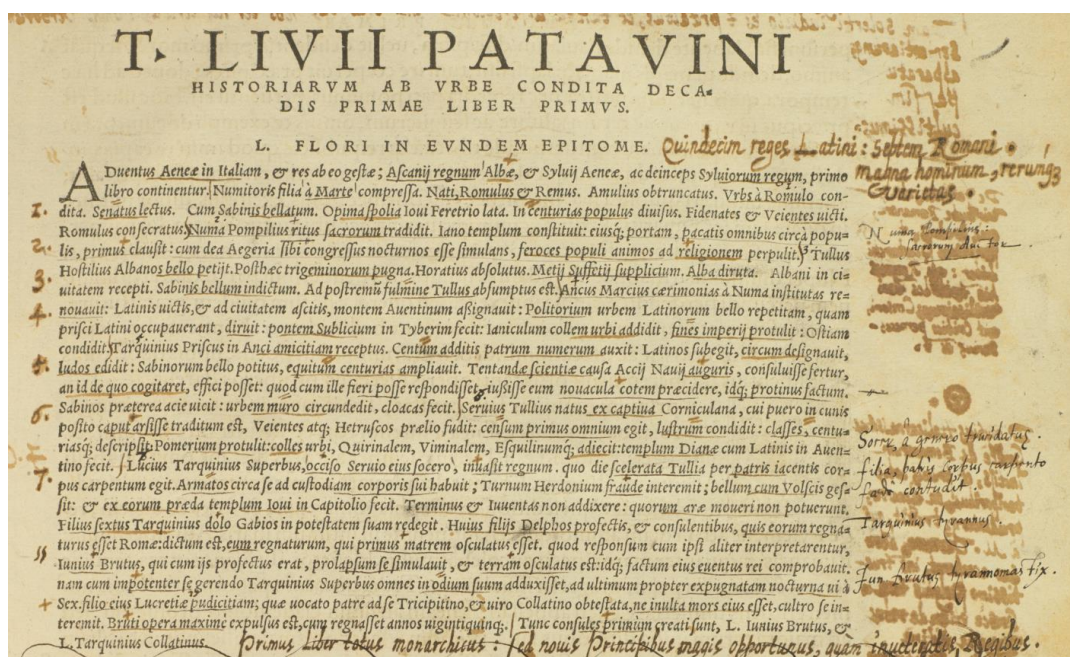 T. LIVII PATAVINI
HISTORIARVM AB VRBE CONDITA DECA-
DIS PRIMAE LIBER PRIMVS.
L. FLORI IN EVNDEM EPITOME.
Quindecim reges Latini: Septem Romani.
magna hominum, rerumq3
Varietas.
ADuentus Aeneæ in Italiam, & res ab eo gestæ; Ascanij regnum Albæ, & Syluij Aeneæ, ac deinceps Syluiorum regum, primo
libro continentur. Numitoris filia à Marte compressa. Nati, Romulus & Remus. Amulius obtruncatus. Vrbs à Romulo con-
1. dita. Senatus lectus. Cum Sabinis bellatum. Opima spolia Ioui Feretrio lata. In centurias populus diuisus. Fidenates & Veientes uicti.
Romulus consecratus. Numa Pompilius ritus sacrorum tradidit. Iano templum constituit: eiusq; portam, pacatis omnibus circà popu-
Numa Pompilius:
sacrorum auctor
2. lis, primus clausit: cum dea Aegeria sibi congressus nocturnos esse simulans, feroces populi animos ad religionem perpulit. Tullus
3. Hostilius Albanos bello petijt. Posthæc trigeminorum pugna. Horatius absolutus. Metij Suffetij supplicium. Alba diruta. Albani in ci-
uitatem recepti. Sabinis bellum indictum. Ad postremũ fulmine Tullus absumptus est. Ancus Marcius cærimonias à Numa institutas re-
4. nouauit: Latinis uictis, & ad ciuitatem ascitis, montem Auentinum aßignauit: Politorium urbem Latinorum bello repetitam, quam
prisci Latini occupauerant, diruit: pontem Sublicium in Tyberim fecit: Ianiculum collem urbi addidit, fines imperij protulit: Ostiam
condidit. Tarquinius Priscus in Anci amicitiam receptus. Centum additis patrum numerum auxit: Latinos subegit, circum designauit,
5. ludos edidit: Sabinorum bello potitus, equitum centurias ampliauit. Tentandæ scientiæ causa Accij Nauij auguris, consuluisse fertur,
an id de quo cogitaret, effici posset: quod cum ille fieri posse respondisset, iußisse eum nouacula cotem præcidere, idq; protinus factum.
6. Sabinos præterea acie uicit: urbem muro circundedit, cloacas fecit. Seruius Tullius natus ex captiua Corniculana, cui puero in cunis
posito caput arsisse traditum est, Veientes atq; Hetruscos prælio fudit: censum primus omnium egit, lustrum condidit: classes, centu-
riasq; descripsit: Pomerium protulit: colles urbi, Quirinalem, Viminalem, Esquilinumq; adiecit: templum Dianæ cum Latinis in Auen-
7. tino fecit. Lucius Tarquinius Superbus, occiso Seruio eius socero, inuasit regnum. quo die scelerata Tullia per patris iacentis cor-
pus carpentum egit. Armatos circa se ad custodiam corporis sui habuit; Turnum Herdonium fraude interemit; bellum cum Volscis ges-
Socer, à genero trucidatus.
filia, patris corpus carpento
fœdè contudit.
sit: & ex eorum præda templum Ioui in Capitolio fecit. Terminus & Iuuentas non addixere: quorum aræ moueri non potuerunt.
Filius sextus Tarquinius dolo Gabios in potestatem suam redegit. Huius filijs Delphos profectis, & consulentibus, quis eorum regna-
Tarquinius tyrannus.
turus esset Romæ: dictum est, eum regnaturum, qui primus matrem osculatus esset. quod responsum cum ipsi aliter interpretarentur,
Iunius Brutus, qui cum ijs profectus erat, prolapsum se simulauit, & terram osculatus est: idq; factum eius euentus rei comprobauit.
Iun. Brutus tyrannomastix.
nam cum impotenter se gerendo Tarquinius Superbus omnes in odium suum adduxisset, ad ultimum propter expugnatam nocturna ui à
Sex. filio eius Lucretiæ pudicitiam; quæ uocato patre ad se Tricipitino, & uiro Collatino obtestata, ne inulta mors eius esset, cultro se in-
teremit. Bruti opera maximè expulsus est, cum regnasset annos uigintiquinq;. Tunc consules primùm creati sunt, L. Iunius Brutus, &
L. Tarquinius Collatinus.
Primus Liber totus monarchicus: sed nouis Principibus magis opportunus, quàm inueteratis Regibus.